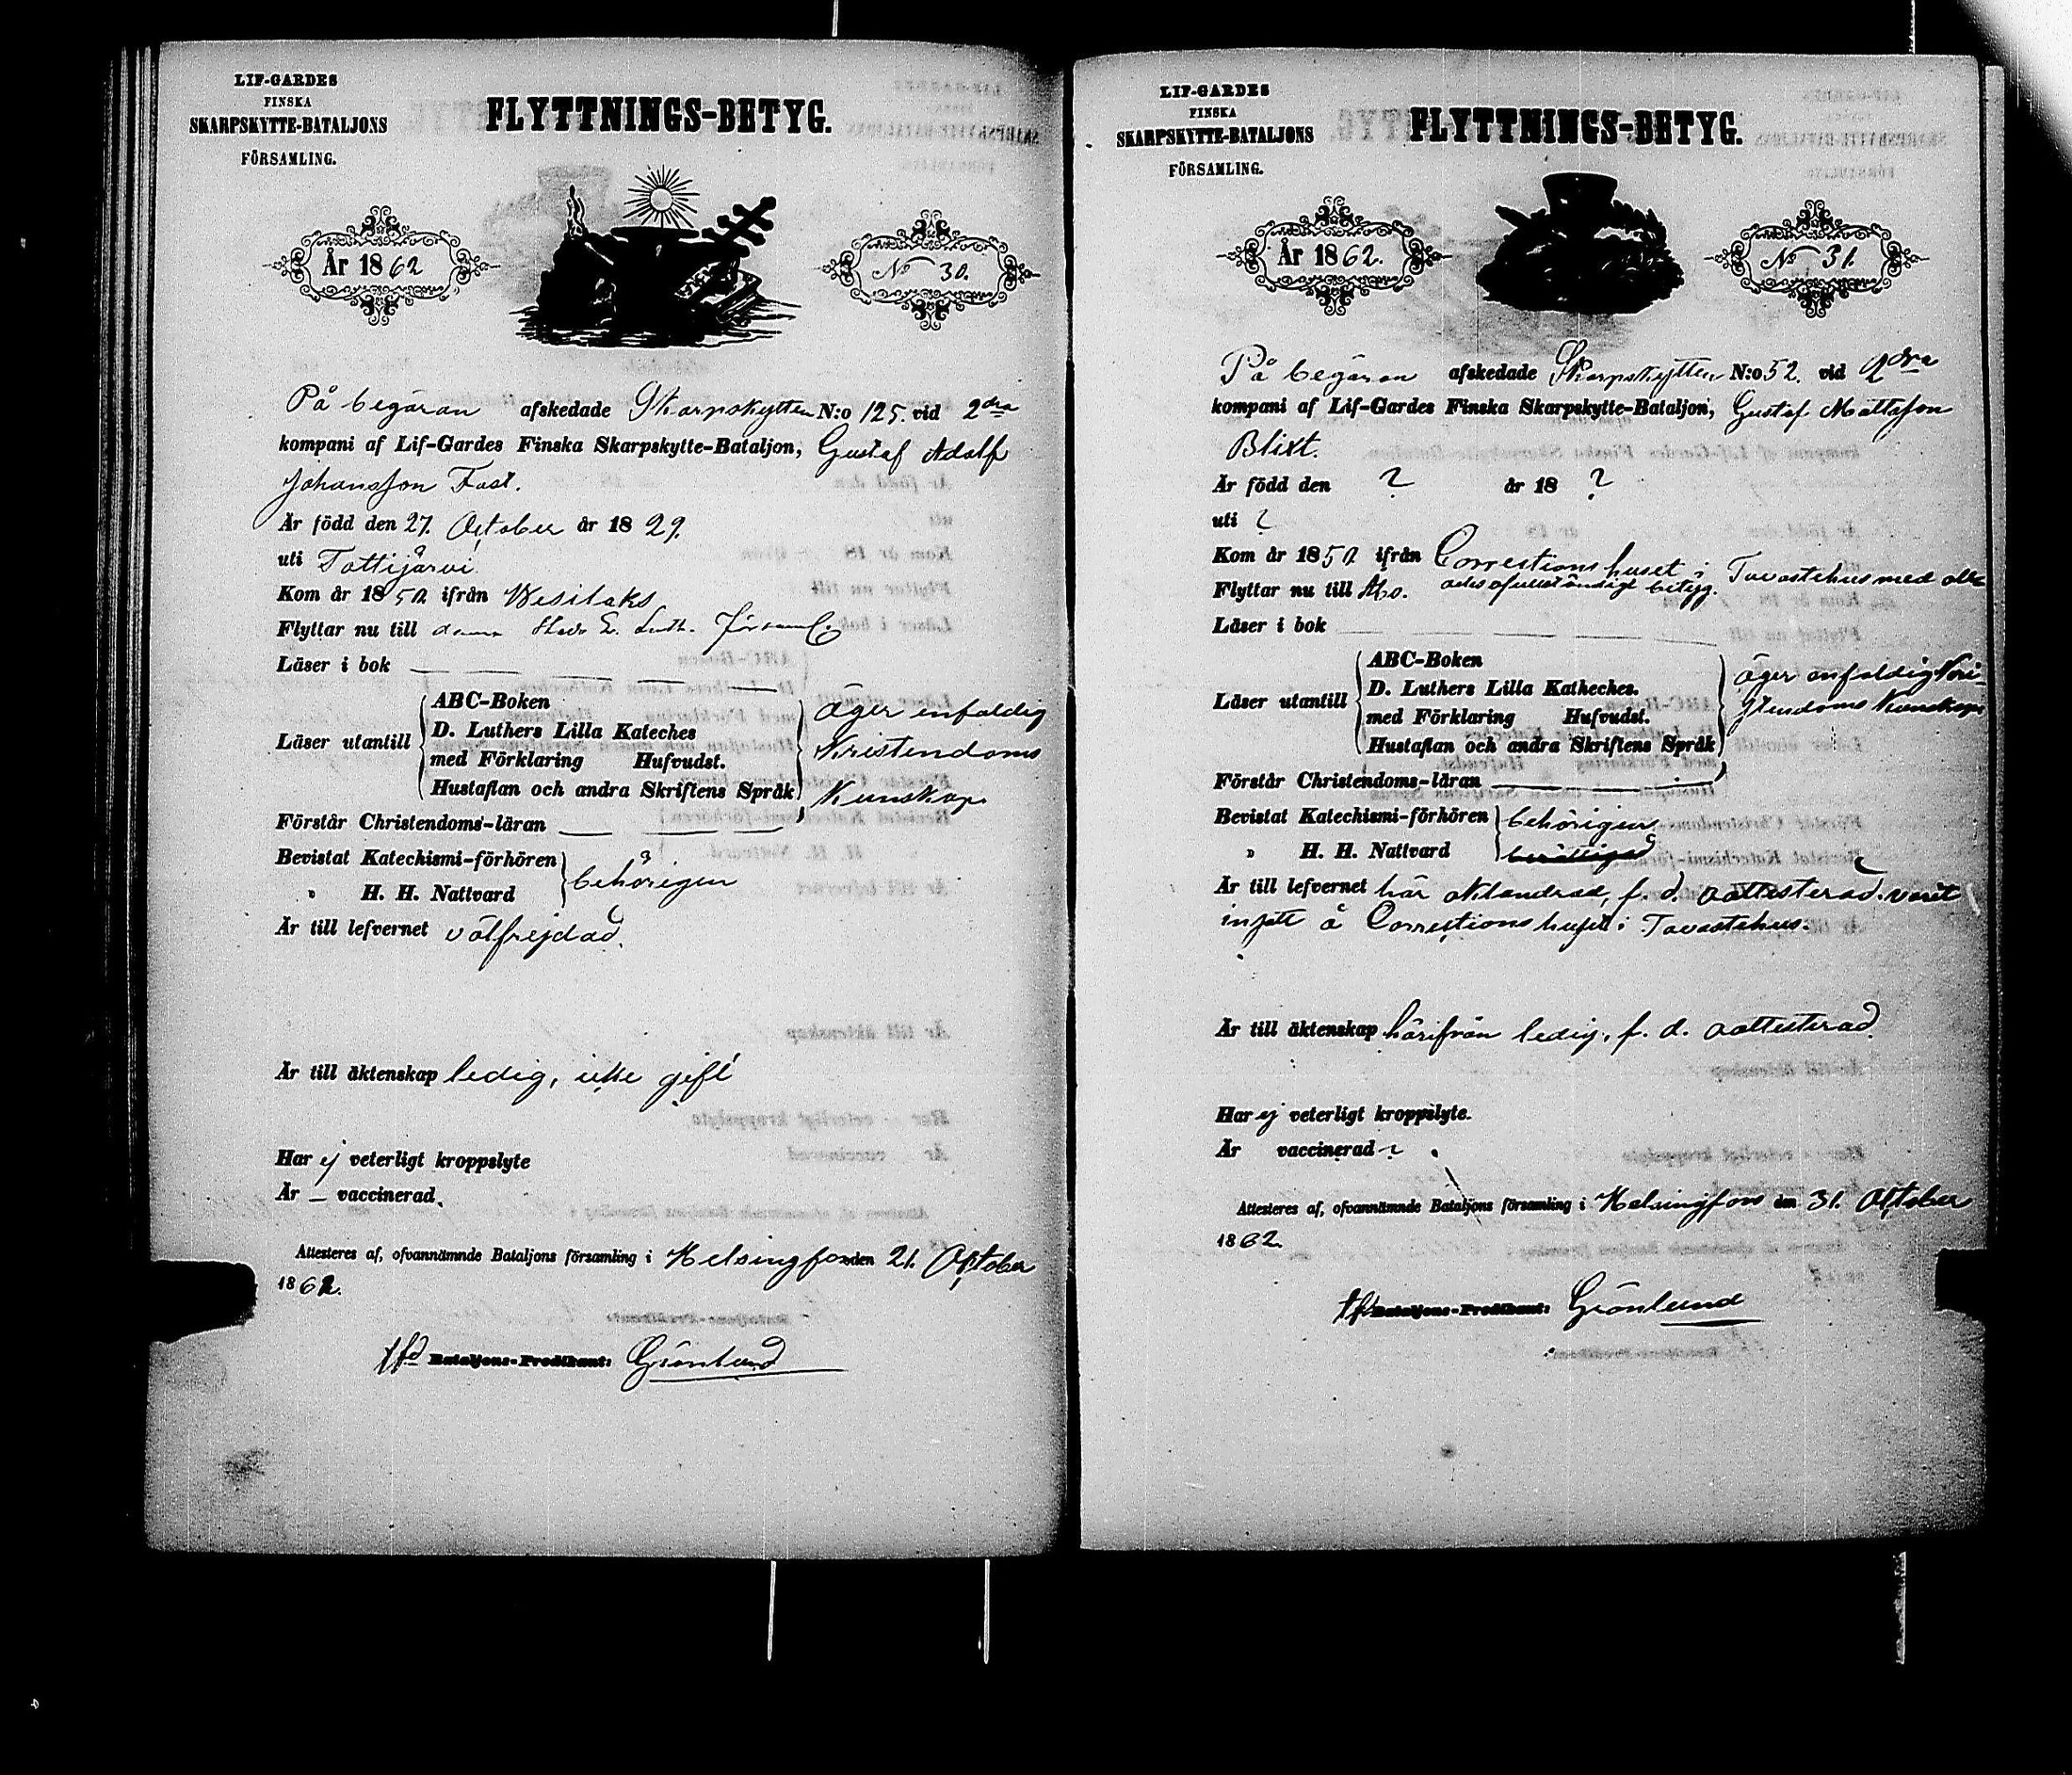 LIF-GARDES
FINSKA
SKARPSKYTTE-BATALJONS
FÖRSAMLING.
FLYTTNINGS-BETYG.
År 1862
No 30.
På begäran afskedade Skarpskytten N:o 125. vid 2dra
kompani af Lif-Gardes Finska Skarpskytte-Bataljon, Gustaf Adolf
Johansson Fast.
Är född den 27. October år 1829.
uti Tottijärvi
Kom år 185 ifrån Wesilaks
Flyttar nu till denna Stads E. Luth. Församl.
Läser i bok
Läser utantill
ABC-Boken
D. Luthers Lilla Kateches
med Förklaring Hufvudst.
Hustaflan och andra Skriftens Språk
äger enfaldig
Kristendoms
Kunskap
Förstår Christendoms-läran
Bevistat Katechismi-förhören
" H. H. Nattvard
behörigen
Är till lefvernet välfrejdad.
Är till äktenskap ledig, icke gift
Har ej veterligt kroppslyte
Är – vaccinerad.
Attesteres af, ofvannämnde Bataljons församling i Helsingfors den 21. October
1862.
tfd Bataljons-Predikant: Grönlund
LIF-GARDES
FINSKA
SKARPSKYTTE-BATALJONS
FÖRSAMLING.
FLYTTNINGS-BETYG.
År 1862.
No 31.
På begäran afskedade Skarpskytten N:o 52. vid 2dra
kompani af Lif-Gardes Finska Skarpskytte-Bataljon, Gustaf Mattsson
Blixt.
Är född den ? år 18 ?
uti ?
Kom år 185 ifrån Correctionshuset i Tavastehus med
Flyttar nu till Åbo. ofullständigt betyg.
Läser i bok
Läser utantill
ABC-Boken
D. Luthers Lilla Katheches.
med Förklaring Hufvudst.
Hustaflan och andra Skriftens Språk
äger enfaldig Kri-
stendoms Kunskap
Förstår Christendoms-läran
Bevistat Katechismi-förhören
" H. H. Nattvard
behörigen
Är till lefvernet här oklandrad, f. d. oattesterad. varit
insatt å Correctionshuset i Tavastehus.
Är till äktenskap härifrån ledig, f. d. oattesterad
Har ej veterligt kroppslyte.
Är vaccinerad ?
Attesteres af, ofvannämnde Bataljons församling i Helsingfors den 31. October
1862.
tf Bataljons-Predikant: Grönlund